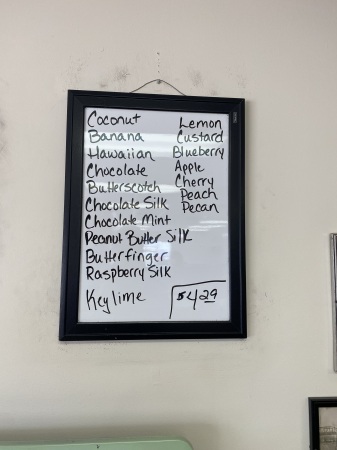 Coconut
Banana
Hawaiian
Chocolate
Butterscotch
Chocolate Silk
Chocolate Mint
Peanut Butter Silk
Butterfinger
Raspberry Silk
Key lime
Lemon
Custard
Blueberry
Apple
Cherry
Peach
Pecan
$4.29